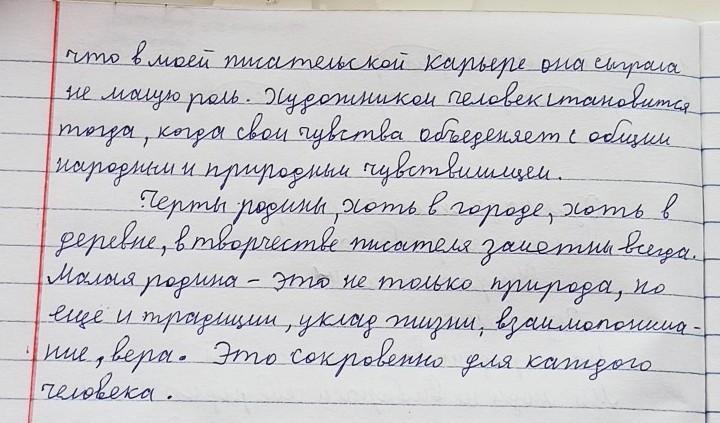 что в моей писательской карьере она сыграла
не малую роль. Художником человек становится
тогда, когда свои чувства объеденяет с общим
народным и природным чувствилищем.
Черты родины, хоть в городе, хоть в
деревне, в творчестве писателя заметны всегда.
Малая родина - это не только природа, но
еще и традиции, уклад жизни, взаимопонима-
ние, вера. Это сокровенно для каждого
человека.